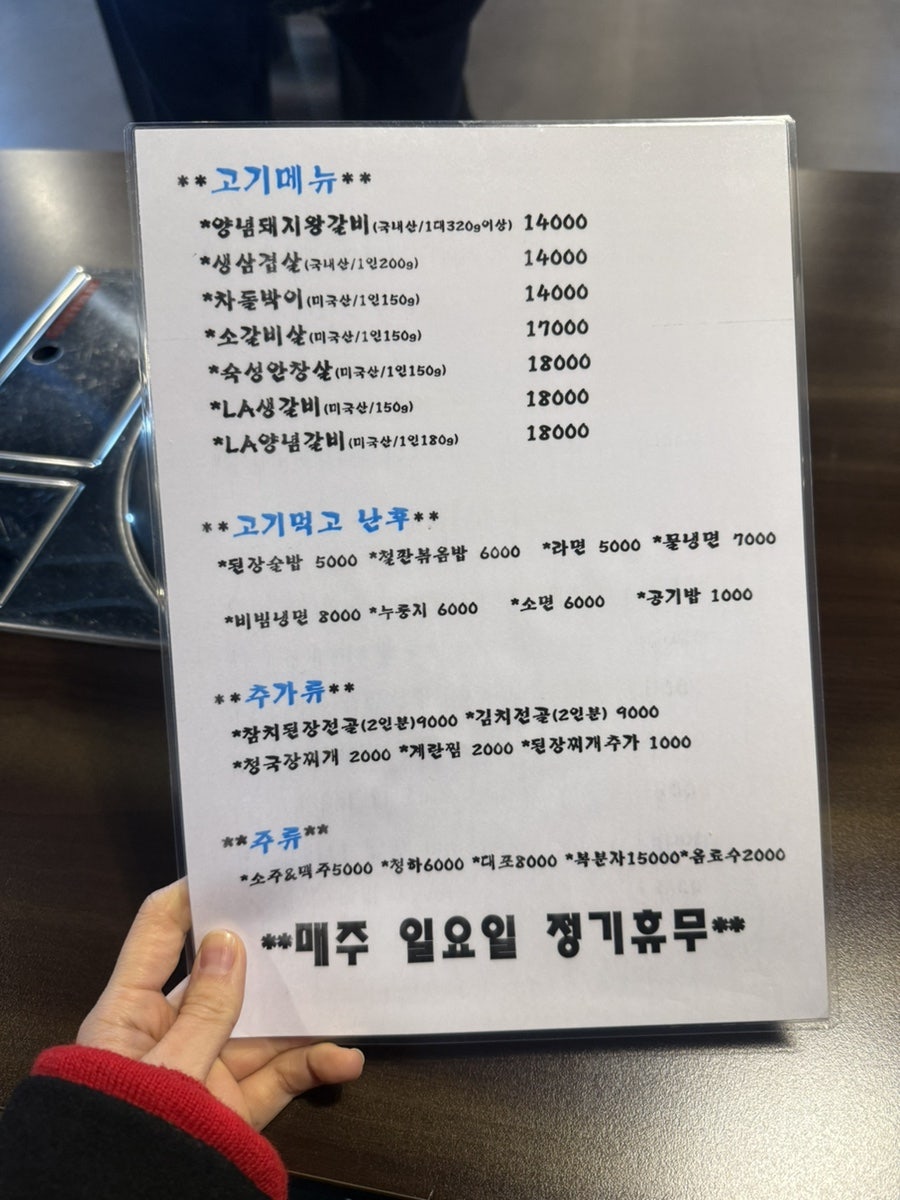 **고기메뉴**
*양념돼지왕갈비(국내산/1대320g이상) 14000
*생삼겹살(국내산/1인200g) 14000
*차돌박이(미국산/1인150g) 14000
*소갈비살(미국산/1인150g) 17000
*숙성안창살(미국산/1인150g) 18000
*LA생갈비(미국산/150g) 18000
*LA양념갈비(미국산/1인180g) 18000
**고기먹고 난후**
*된장술밥 5000 *철판볶음밥 6000 *라면 5000 *물냉면 7000
*비빔냉면 8000 *누룽지 6000 *소면 6000 *공기밥 1000
**추가류**
*참치된장전골(2인분)9000 *김치전골(2인분) 9000
*청국장찌개 2000 *계란찜 2000 *된장찌개추가 1000
**주류**
*소주&맥주5000 *청하6000 *대포8000 *복분자15000*음료수2000
**매주 일요일 정기휴무**